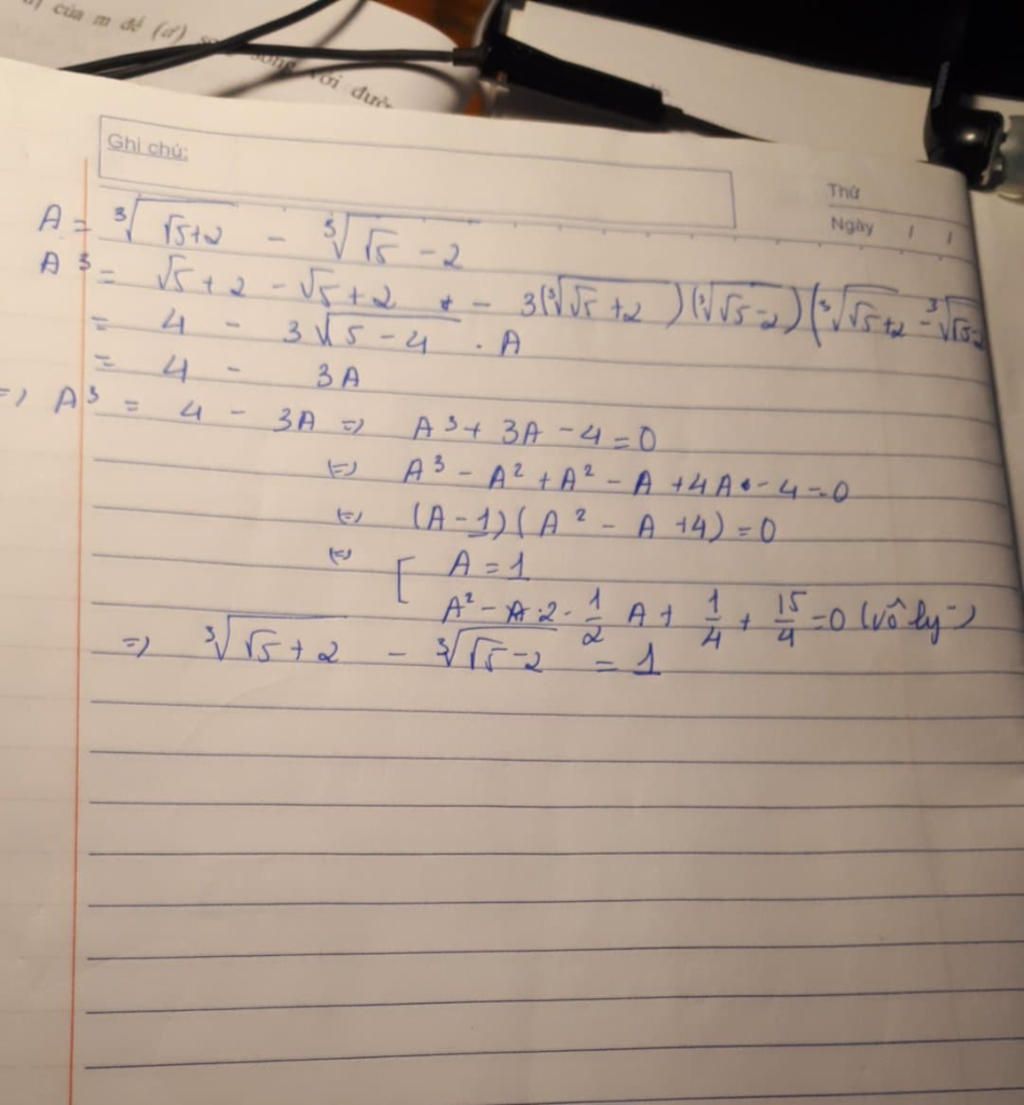 của m để (d') song song với đườ
Ghi chú:
Thứ
Ngày / /
A = ∛(√5+2) - ∛(√5-2)
A³ = √5+2-√5+2 - 3(∛(√5+2))(∛(√5-2))(∛(√5+2) - ∛(√5-2
= 4 - 3√(5-4) . A
= 4 - 3A
=> A³ = 4 - 3A => A³+3A-4=0
(=) A³-A²+A²-A+4A-4=0
(=) (A-1)(A²-A+4)=0
(=) [ A=1
A²-A.2.1/2 A+1/4+15/4=0 (vô lý)
=> ∛(√5+2) - ∛(√5-2) = 1